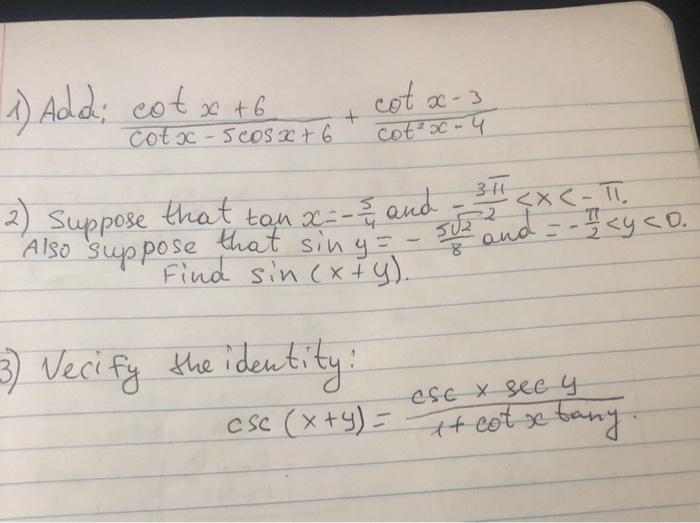 1) Add: cot x + 6 / cot x - 5 cos x + 6 + cot x - 3 / cot² x - 4
2) Suppose that tan x = - 5/4 and - 3π/2 < x < - π.
Also suppose that sin y = - 5√2/8 and = - π/2 < y < 0.
Find sin (x + y).
3) Verify the identity:
csc (x + y) = csc x sec y / 1 + cot x tan y.